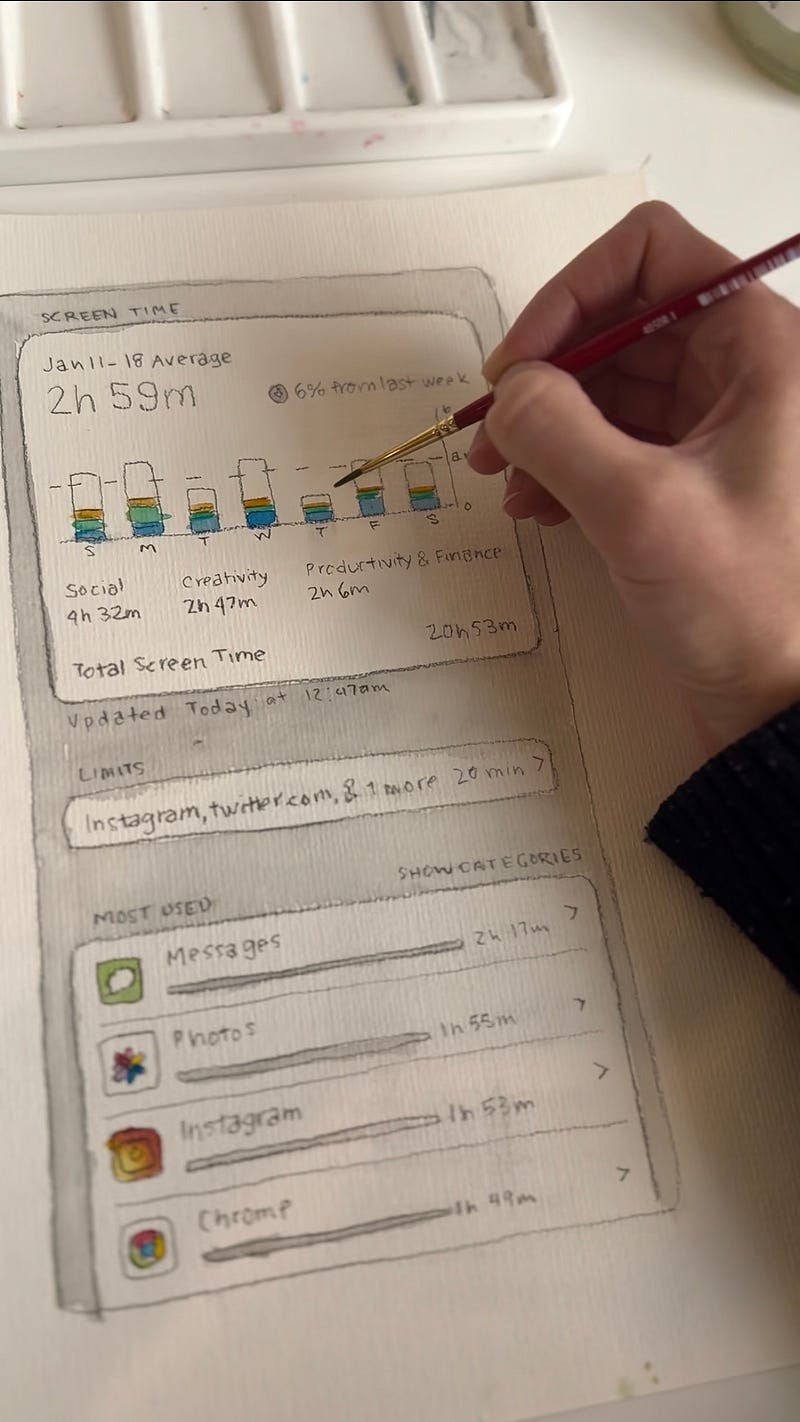 SCREEN TIME
Jan 11-18 Average
2h 59m
6% from last week
0
S M T W T F S
Social Creativity Productivity & Finance
4h 32m 2h 47m 2h 6m
Total Screen Time 20h53m
Updated Today at 12:47am
LIMITS
Instagram, twitter.com, & 1 more 20 min >
MOST USED SHOW CATEGORIES
Messages 2h 17m >
Photos 1h 55m >
Instagram 1h 53m >
Chrome 1h 49m >